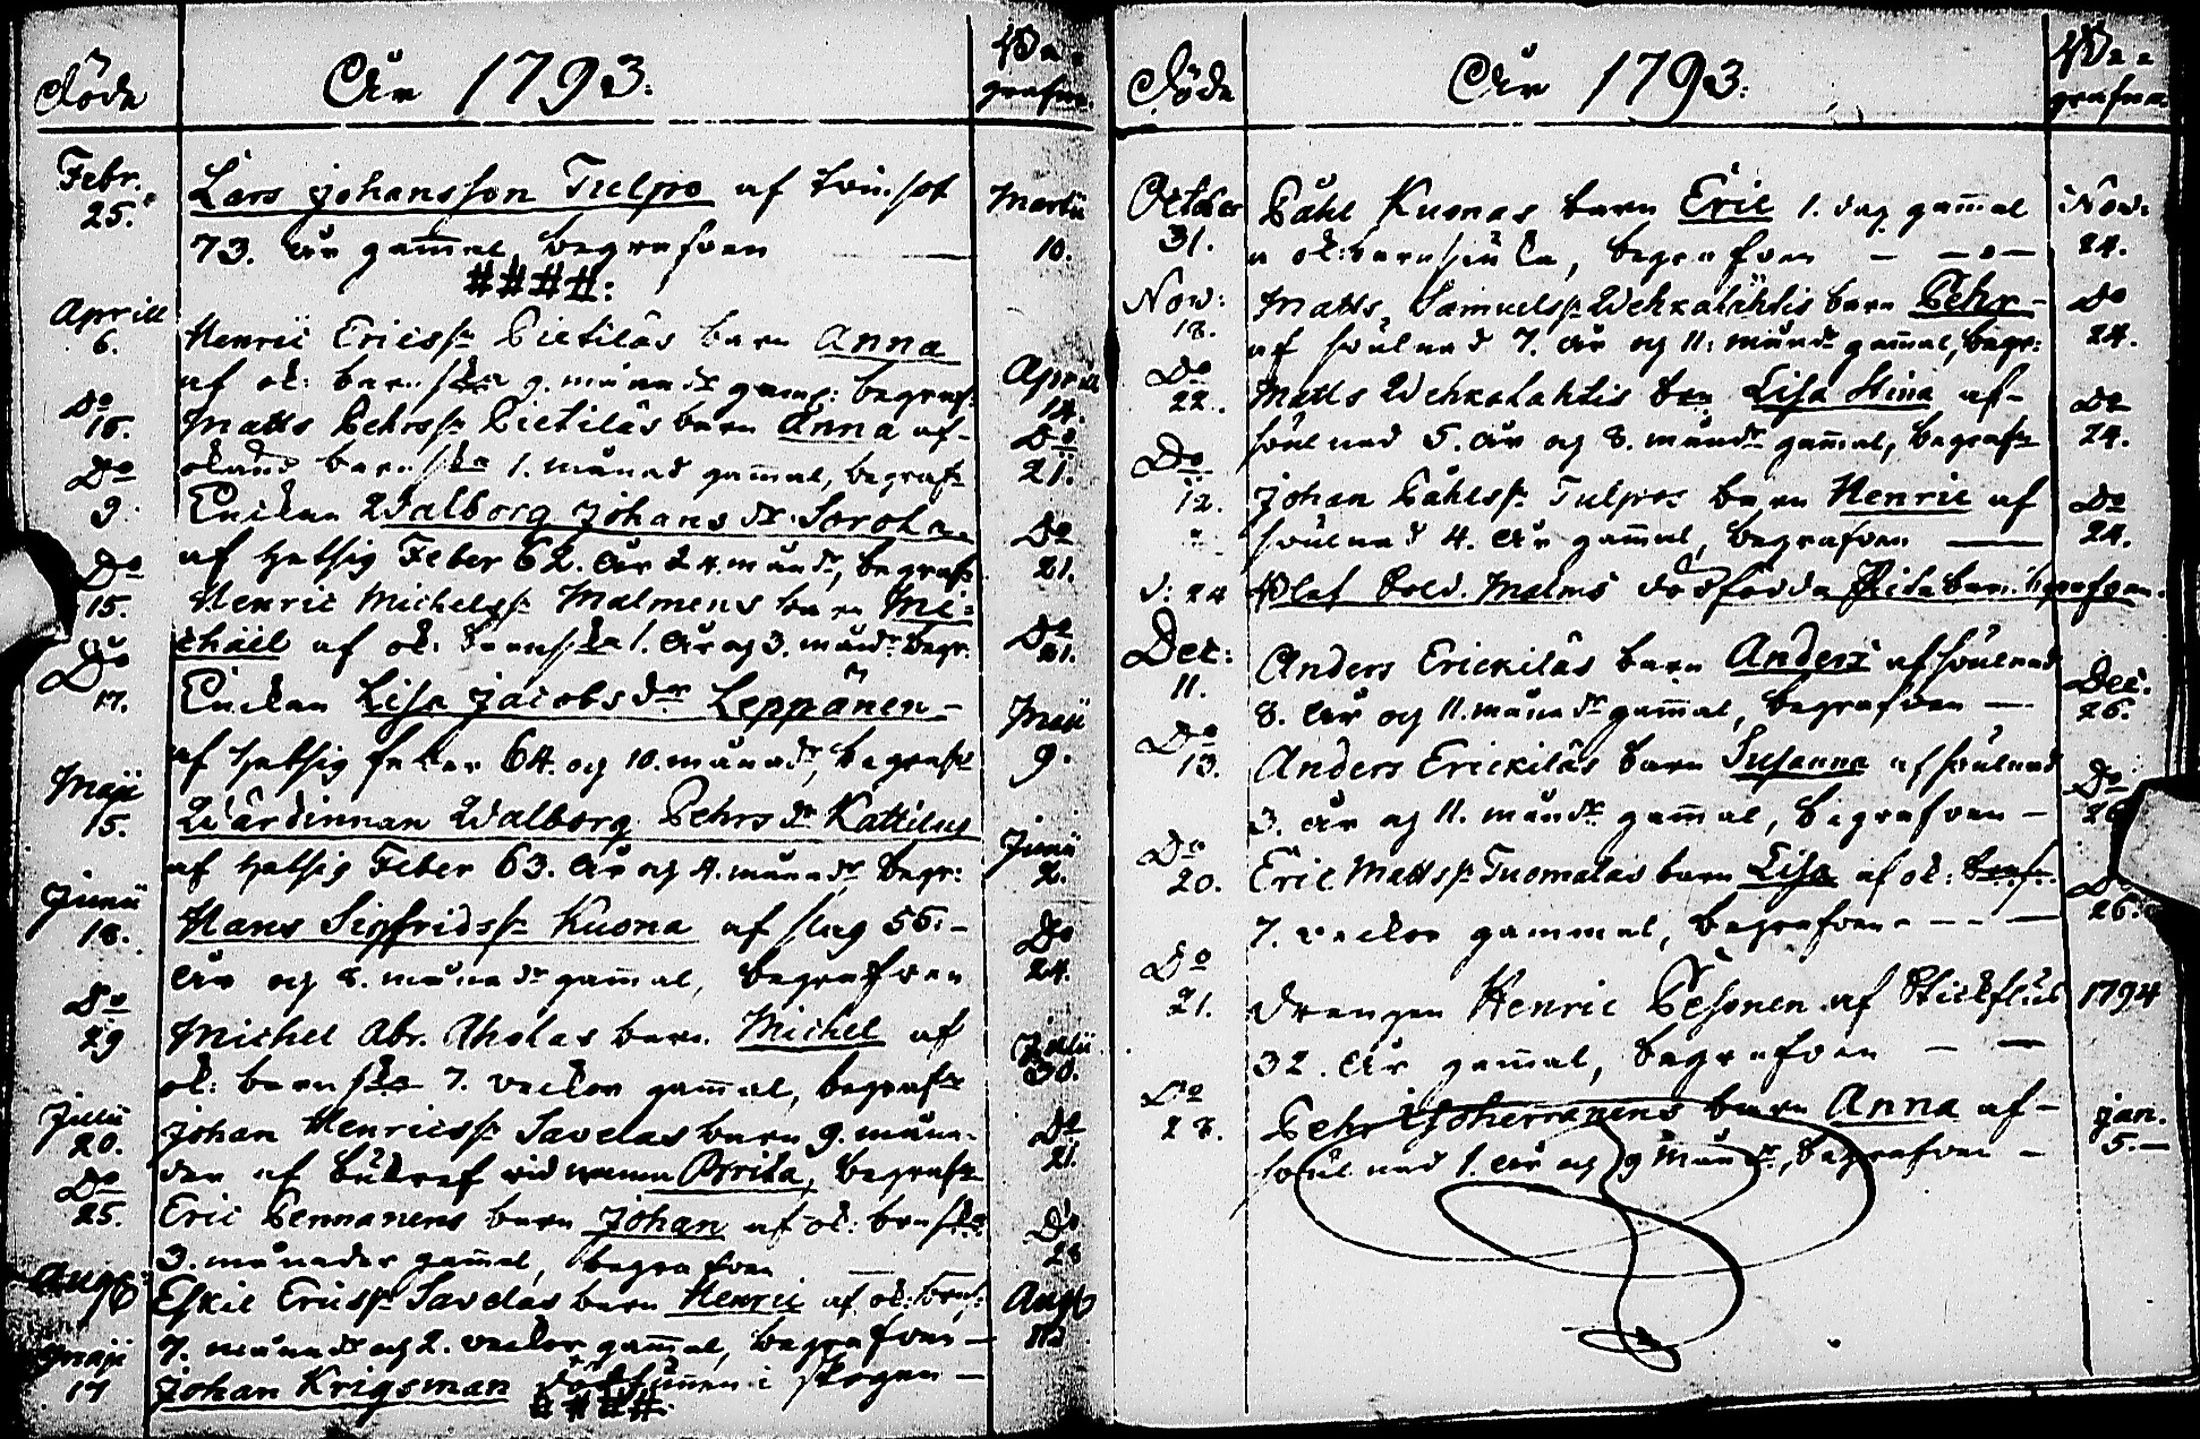 Döde
År 1793.
Be-
grafne.
Febr.
25.
Lars Johansson Tulpo af
73. år gammal, begrafven
Martii
10.
####:
Aprill
6.
Henric Ericss: Pietiläs barn Anna
af ok: barnska 9. månadr gamal: begraf:
Aprill
14.
Do
10.
Matts Pehrss: Pietiläs barn Anna af
okänd barnska 1. månad gammal, begrafn
Do
21.
Do
9.
Enckan Walborg Johansdr Sorola
af Hetsig Feber 62. år månadr, begrafn
Do
21.
Do
15.
Henric Michelss: Malmens barn Mi-
chäel af ok: barnska 1. år og 3. månadr begr.
Do
21.
Do
17.
Enckan Lisa Jacobsdr Leppänen
af Hetsig feber 64. og 10. månadr, begrafn
Maji
9.
Maji
15.
Wärdinnan Walborg Pehrsdr Kattilus
af Hetsig Feber 63. år og 4. månadr begr:
Junii
2.
Junii
18.
Hans Sigfridss: Kuona af slag 56.
år og 8. månadr gammal, begrafven
Do
24.
Do
29
Michel Abr. Aholas barn Michel af
ok: barnska 7. veckor gammal, begrafn
Junii
30.
Julii
20.
Johan Henricss: Savelas barn 9. måna-
der af vid namn Brita, begrafn
Do
21.
Do
25.
Eric Pennanens barn Johan af ok: brnska
3. månader gammal, begrafven
Do
28
Aug:
Eskil Ericss: Savelas barn Henric af ok: barns:
7. månadr og 2. veckor gammal, begrafven
Aug:
Maji
17
Johan Krigsman död funnen i skogen
####.
Döde
År 1793.
Be-
grafne
October
31.
Påhl Kuonas barn Eric 1. dag gammal
a ok: barnsjuka, begrafven
Nov:
24.
Nov:
18.
Matts Samuelss: Wehkalahtis barn Pehr
af svulnad 7. år og 11. månadr gammal, begr:
Do
24.
Do
22.
Matts Wehkalahtis barn Lisa Stina af
svulnad 5. år og 8. månadr gammal, begrafn
Do
24.
Do
12.
Johan Påhlss: Tulpos barn Henric af
svulnad 4. år gammal, begrafven
Do
24.
d: 24 Blef Sold. Malms dödfödda Pilte barn begrafven.
Dec:
11.
Anders Erickiläs barn Anders af svulnad
8. år og 11. månadr gammal, begrafven
Dec.
26.
Do
13.
Anders Erickiläs barn Susanna af svulnad
3. år og 11. månadr gammal, begrafven
Do
26
Do
20.
Eric Mattss: Tuomalas barn Lisa af ok: barns.
7. veckor gammal, begrafven
Do
26.
Do
21.
Drengen Henric Pesonen af Stickfluss
32. år gammal, begrafven
1794
Do
28.
Pehr Ihoherranens barn Anna af
svulnad 1. år og 9 månadr, begrafven
jan.
5.